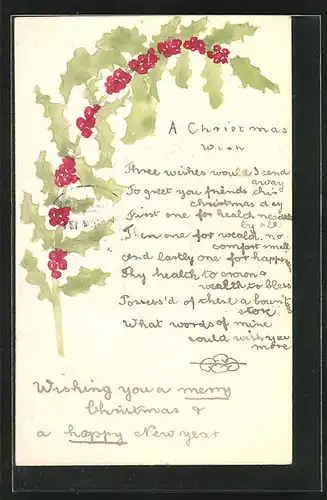 A Christmas
Wish
Three wishes would I send
away
To greet you friends this
christmas day
First one for health needed
by all
Then one for wealth, no
comfort small
and lastly one for happiness
Thy health to crown &
wealth to bless
Possess'd of these a bount'ous
store
What words of mine
could wish you
more
Wishing you a merry
Christmas &
a happy New year